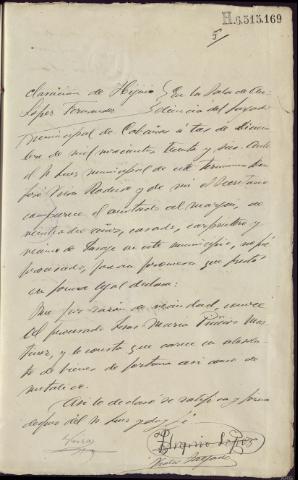 H.6.515.169
5/
claración de Higinio } En la Sala de Au-
López Fernandez } diencia del Juzgado
municipal de Cabana á tres de diciem
bre de mil novecientos treinta y seis. Ante
el Sr. Juez municipal de este término Don
José y de mi el Secretario
comparece el anotado al margen, de
veintiocho años, casado, carpintero y
vecino de en este municipio, no fué
procesado, previa promesa que prestó
en forma legal declara:
Que por razón de vecindad, conoce
al procesado José María
y le consta que carece en absolu
to de bienes de fortuna así como de
metálico.
Así lo declaró se ratifica y firma
despues del Sr. Juez y doy fé
Higinio López